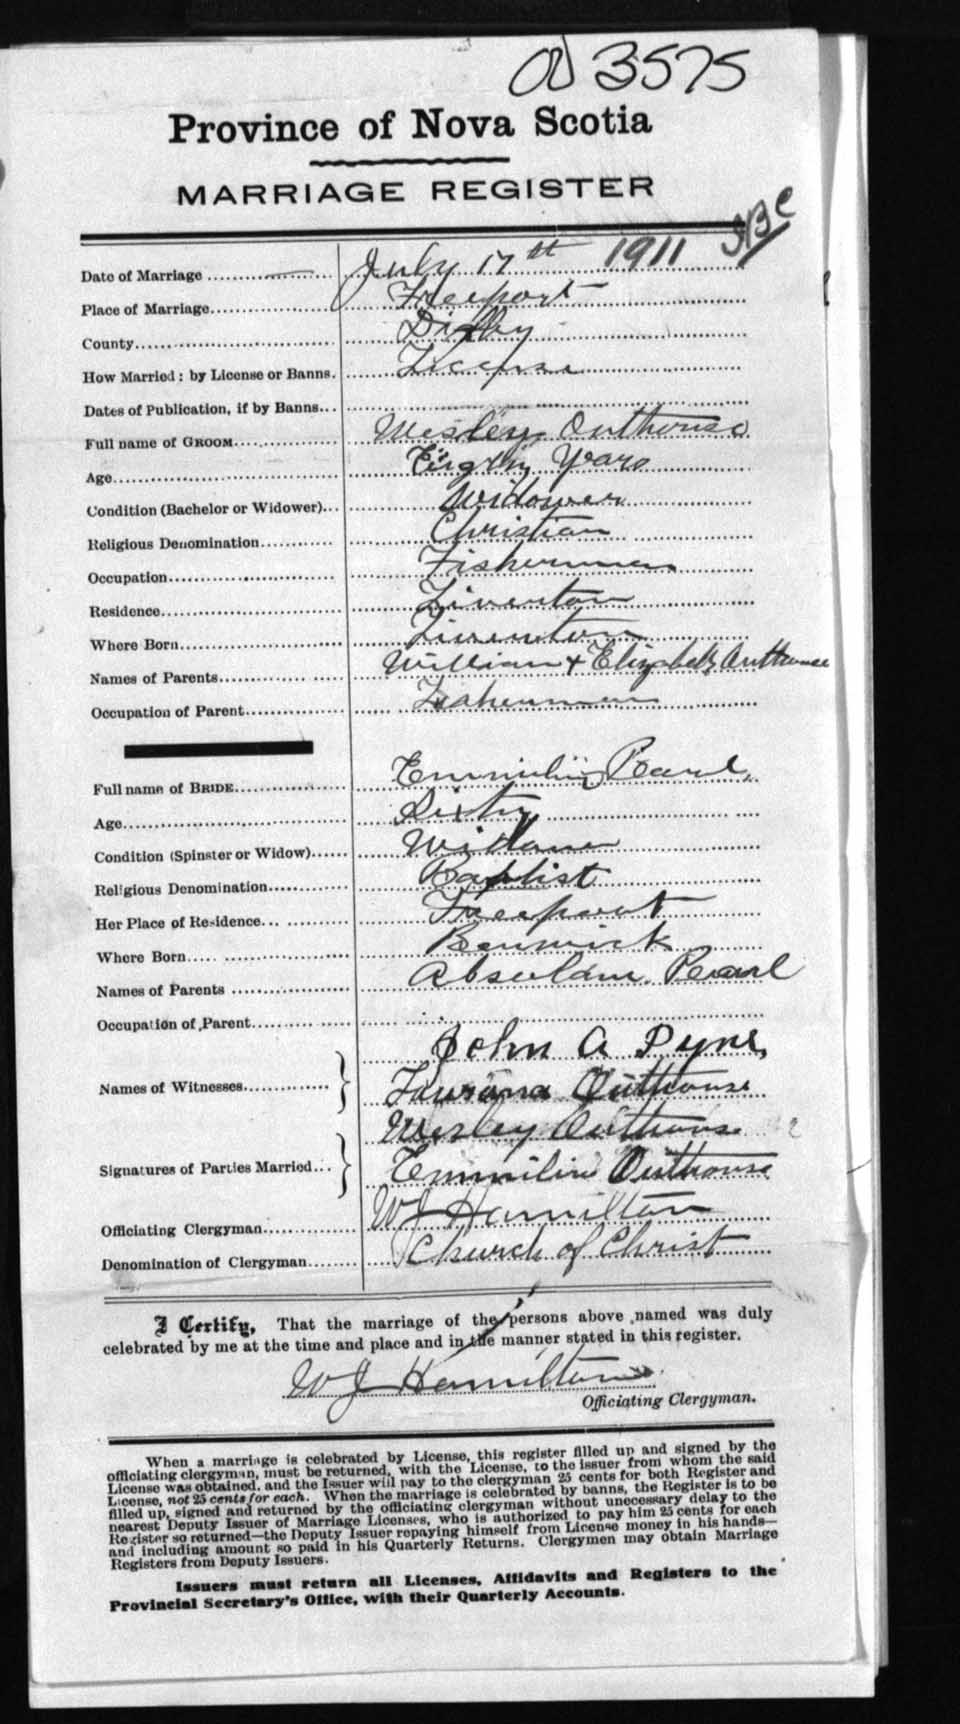 3575
Province of Nova Scotia
MARRIAGE REGISTER
Date of Marriage July 17th 1911
Place of Marriage Freeport
County Digby
How Married: by License or Banns. License
Dates of Publication, if by Banns
Full name of GROOM Wesley Outhouse
Age Eighty Years
Condition (Bachelor or Widower) Widower
Religious Denomination Christian
Occupation Fisherman
Residence Tiverton
Where Born Tiverton
Names of Parents William + Elizabeth Outhouse
Occupation of Parent Fisherman
Full name of BRIDE Emmiline Pearl
Age Sixty
Condition (Spinster or Widow) Widow
Religious Denomination Baptist
Her Place of Residence Freeport
Where Born Berwick
Names of Parents Absolam Pearl
Occupation of Parent
John A Pyne
Names of Witnesses
Outhouse
Wesley Outhouse
Signatures of Parties Married
Emmiline Outhouse
Officiating Clergyman WJ Hamilton
Denomination of Clergyman Church of Christ
I Certify, That the marriage of the persons above named was duly
celebrated by me at the time and place and in the manner stated in this register.
W J Hamilton
Officiating Clergyman.
When a marriage is celebrated by License, this register filled up and signed by the
officiating clergyman, must be returned, with the License, to the issuer from whom the said
License was obtained, and the Issuer will pay to the clergyman 25 cents for both Register and
License, not 25 cents for each. When the marriage is celebrated by banns, the Register is to be
filled up, signed and returned by the officiating clergyman without unnecessary delay to the
nearest Deputy Issuer of Marriage Licenses, who is authorized to pay him 25 cents for each
Register so returned—the Deputy Issuer repaying himself from License money in his hands—
and including amount so paid in his Quarterly Returns. Clergymen may obtain Marriage
Registers from Deputy Issuers.
Issuers must return all Licenses, Affidavits and Registers to the
Provincial Secretary's Office, with their Quarterly Accounts.